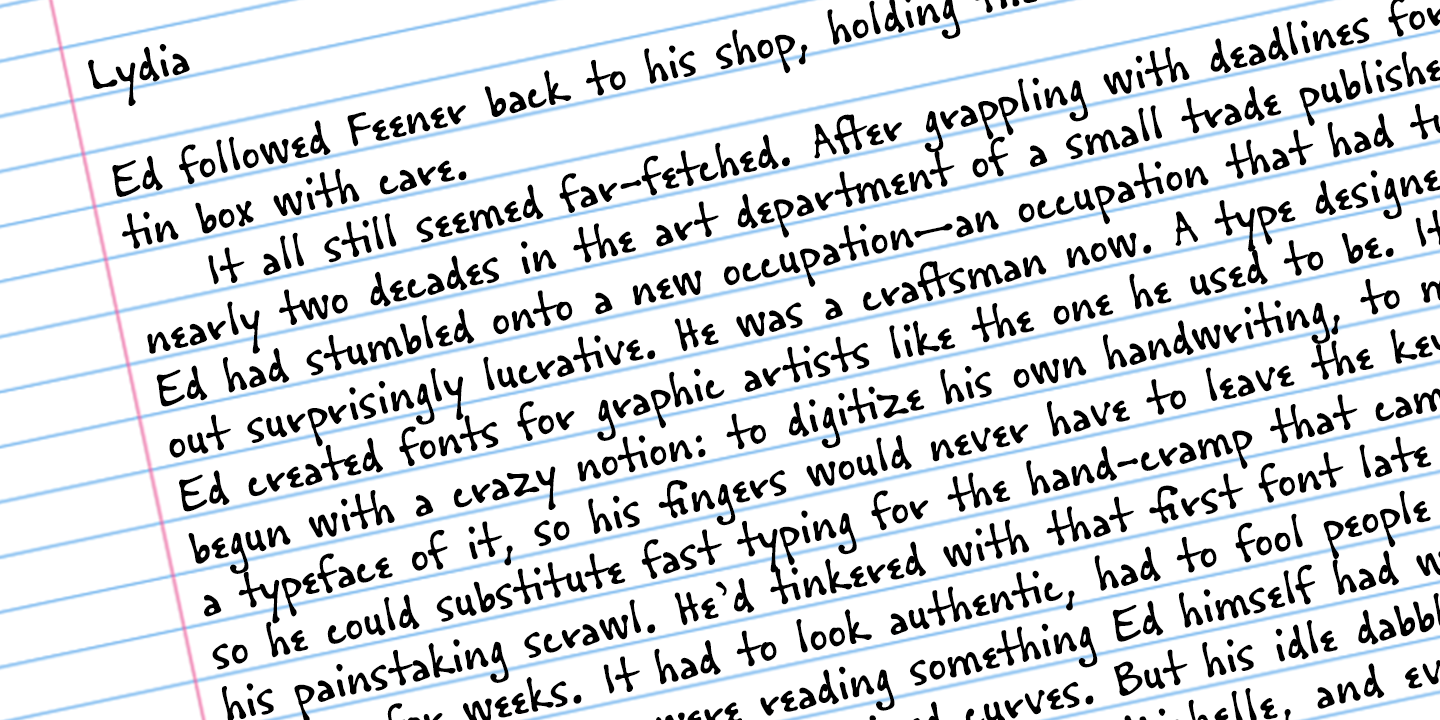 Lydia
Ed followed Feener back to his shop, holding
tin box with care.
It all still seemed far-fetched. After grappling with deadlines for
nearly two decades in the art department of a small trade publishe
Ed had stumbled onto a new occupation—an occupation that had tu
out surprisingly lucrative. He was a craftsman now. A type designe
Ed created fonts for graphic artists like the one he used to be. It
begun with a crazy notion: to digitize his own handwriting, to m
a typeface of it, so his fingers would never have to leave the key
so he could substitute fast typing for the hand-cramp that cam
his painstaking scrawl. He'd tinkered with that first font late
for weeks. It had to look authentic, had to fool people
were reading something Ed himself had w
curves. But his idle dabbl
and ev